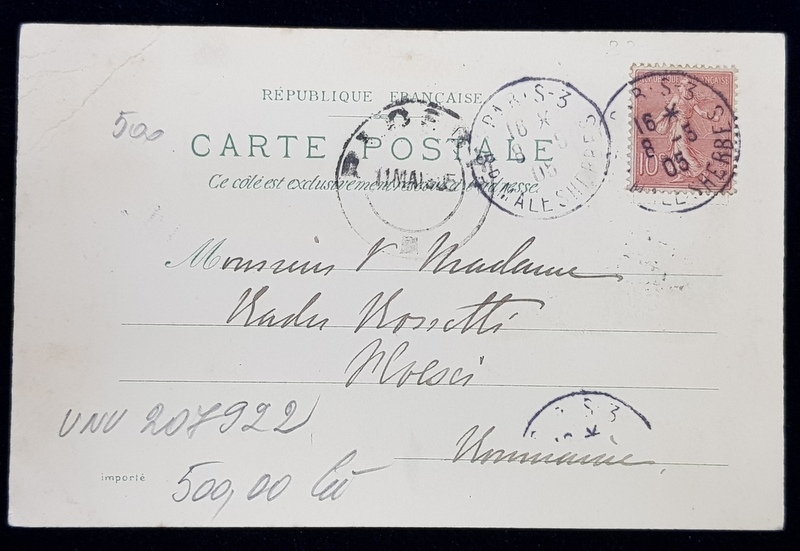 RÉPUBLIQUE FRANÇAISE
500
CARTE POSTALE
Ce côté est exclusivement réservé à l'adresse.
PLOESCI
11 MAI 905
PARIS-3
16 *
8 -5
05
BD MALESHERBES
RÉPUBLIQUE FRANÇAISE
10
PARIS-3
16 *
8 -5
05
MALESHERBES
Monsieur & Madame
Radu Rossetti
Ploesci
Roumanie
S-3
UNU 207922
500,00 lei
importé